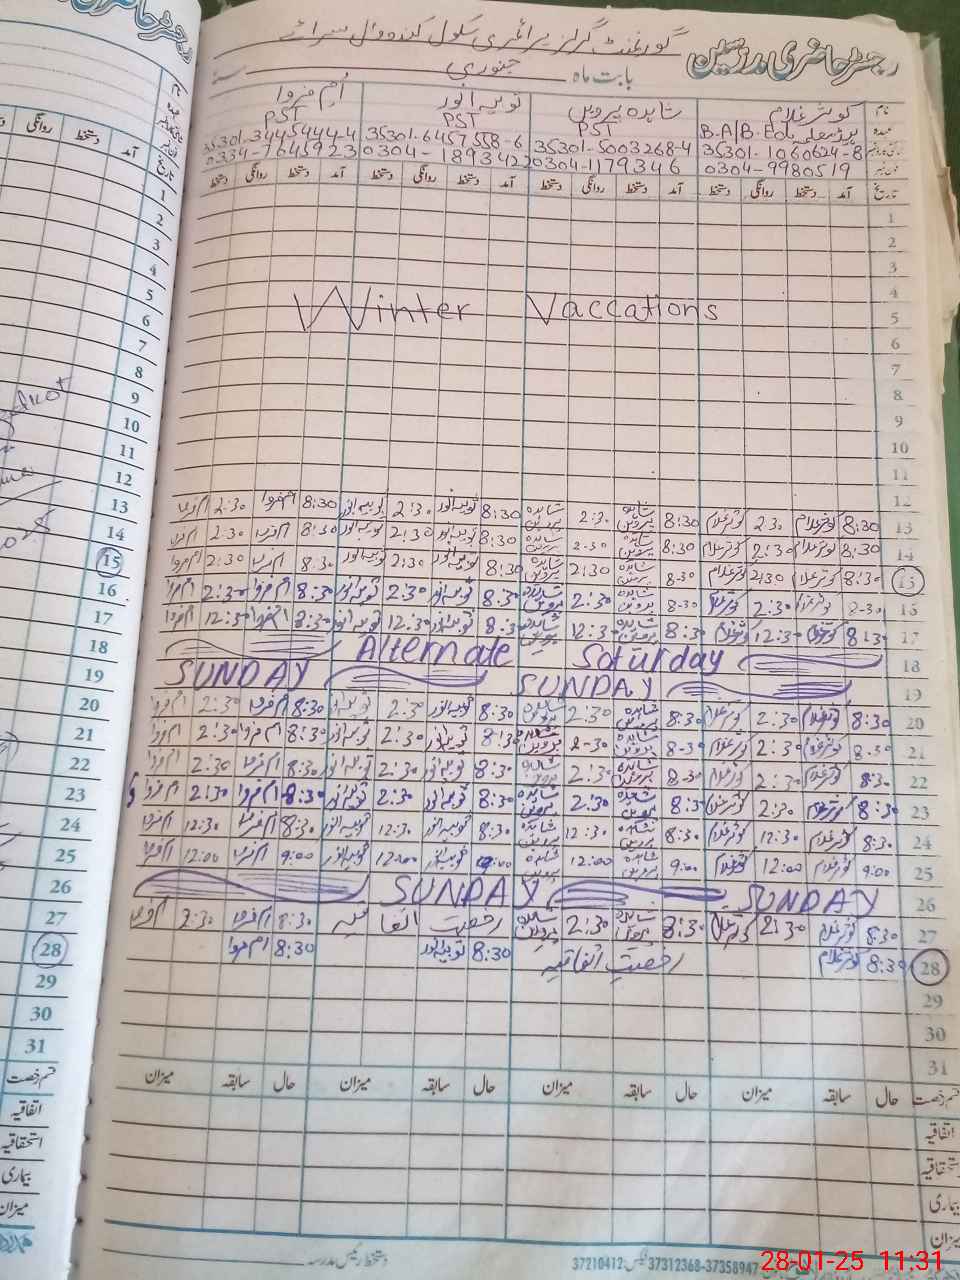 رجسٹر حاضری مدرسین گورنمنٹ گرلز پرائمری سکول
بابت ماہ جنوری
نام کوثر غلام شاہدہ پروین ثوبیہ انور اُم فروا
عہدہ B.A/B.Ed PST PST PST
35301-1060624-8 35301-5003268-4 35301-6457558-6 35301-3445444-4
0304-9980519 0304-1179346 0304-1893422 0334-7645923
تاریخ آمد دستخط روانگی دستخط آمد دستخط روانگی دستخط آمد دستخط روانگی دستخط آمد دستخط روانگی دستخط
1
2
3
4
Winter Vaccations
5
6
7
8
9
10
11
12
13 8:30 کوثر غلام 2:30 کوثر غلام 8:30 شاہدہ پروین 2:30 شاہدہ پروین 8:30 ثوبیہ انور 2:30 ثوبیہ انور 8:30 ام فروا 2:30 ام فروا
14 8:30 کوثر غلام 2:30 کوثر غلام 8:30 شاہدہ پروین 2:30 شاہدہ پروین 8:30 ثوبیہ انور 2:30 ثوبیہ انور 8:30 ام فروا 2:30 ام فروا
15 8:30 کوثر غلام 2:30 کوثر غلام 8:30 شاہدہ پروین 2:30 شاہدہ پروین 8:30 ثوبیہ انور 2:30 ثوبیہ انور 8:30 ام فروا 2:30 ام فروا
16 8:30 کوثر غلام 2:30 کوثر غلام 8:30 شاہدہ پروین 2:30 شاہدہ پروین 8:30 ثوبیہ انور 2:30 ثوبیہ انور 8:30 ام فروا 2:30 ام فروا
17 8:30 کوثر غلام 12:30 کوثر غلام 8:30 شاہدہ پروین 12:30 شاہدہ پروین 8:30 ثوبیہ انور 12:30 ثوبیہ انور 8:30 ام فروا 12:30 ام فروا
18 Alternate Saturday
19 SUNDAY SUNDAY
20 8:30 کوثر غلام 2:30 کوثر غلام 8:30 شاہدہ پروین 2:30 شاہدہ پروین 8:30 ثوبیہ انور 2:30 ثوبیہ انور 8:30 ام فروا 2:30 ام فروا
21 8:30 کوثر غلام 2:30 کوثر غلام 8:30 شاہدہ پروین 2:30 شاہدہ پروین 8:30 ثوبیہ انور 2:30 ثوبیہ انور 8:30 ام فروا 2:30 ام فروا
22 8:30 کوثر غلام 2:30 کوثر غلام 8:30 شاہدہ پروین 2:30 شاہدہ پروین 8:30 ثوبیہ انور 2:30 ثوبیہ انور 8:30 ام فروا 2:30 ام فروا
23 8:30 کوثر غلام 2:30 کوثر غلام 8:30 شاہدہ پروین 2:30 شاہدہ پروین 8:30 ثوبیہ انور 2:30 ثوبیہ انور 8:30 ام فروا 2:30 ام فروا
24 8:30 کوثر غلام 12:30 کوثر غلام 8:30 شاہدہ پروین 12:30 شاہدہ پروین 8:30 ثوبیہ انور 12:30 ثوبیہ انور 8:30 ام فروا 12:30 ام فروا
25 9:00 کوثر غلام 12:00 کوثر غلام 9:00 شاہدہ پروین 12:00 شاہدہ پروین 9:00 ثوبیہ انور 12:00 ثوبیہ انور 9:00 ام فروا 12:00 ام فروا
26 SUNDAY SUNDAY
27 8:30 کوثر غلام 2:30 کوثر غلام 8:30 شاہدہ پروین 2:30 شاہدہ پروین رخصت اتفاقیہ 8:30 ام فروا 2:30 ام فروا
28 8:30 کوثر غلام رخصت اتفاقیہ 8:30 ثوبیہ انور 8:30 ام فروا
29
30
31
قسم رخصت حال سابقہ میزان حال سابقہ میزان حال سابقہ میزان حال سابقہ میزان
اتفاقیہ
استحقاقیہ
بیماری
میزان
دستخط رئیس مدرسہ
37312368-37358947 فیکس:37210412
آمد دستخط روانگی
تاریخ
1
2
3
4
5
6
7
8
9
10
11
12
13
14
15
16
17
18
19
20
21
22
23
24
25
26
27
28
29
30
31
قسم رخصت
اتفاقیہ
استحقاقیہ
بیماری
میزان
28-01-25 11:31